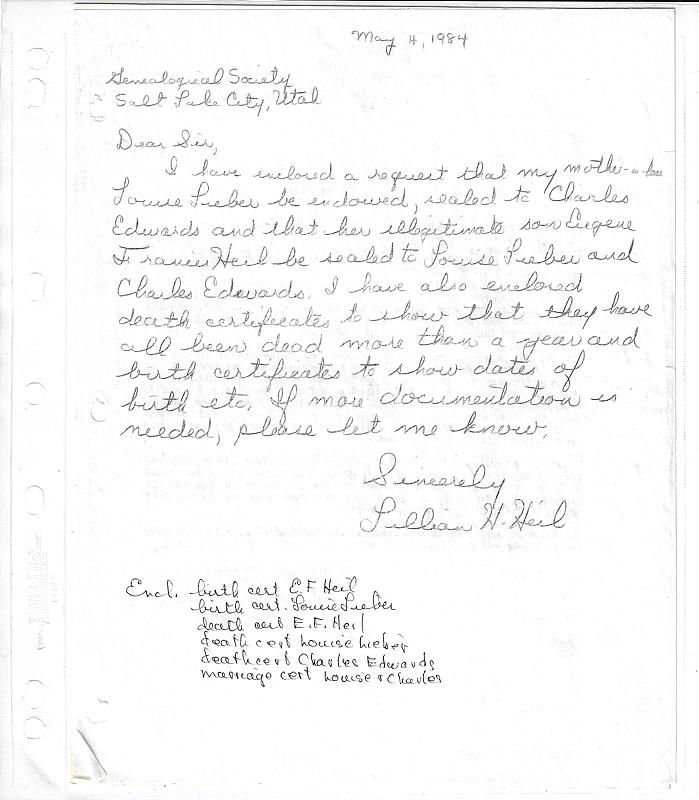 May 4, 1984
Genealogical Society
Salt Lake City, Utah
Dear Sir,
I have enclosed a request that my mother-in-law
Louise Lieber be endowed, sealed to Charles
Edwards and that her illegitimate son Eugene
Francis Heil be sealed to Louise Lieber and
Charles Edwards. I have also enclosed
death certificates to show that they have
all been dead more than a year and
birth certificates to show dates of
birth etc. If more documentation is
needed, please let me know.
Sincerely
Lillian H. Heil
Encl. birth cert E.F Heil
birth cert. Louise Lieber
death cert E.F. Heil
death cert Louise Lieber
death cert Charles Edwards
marriage cert Louise & Charles